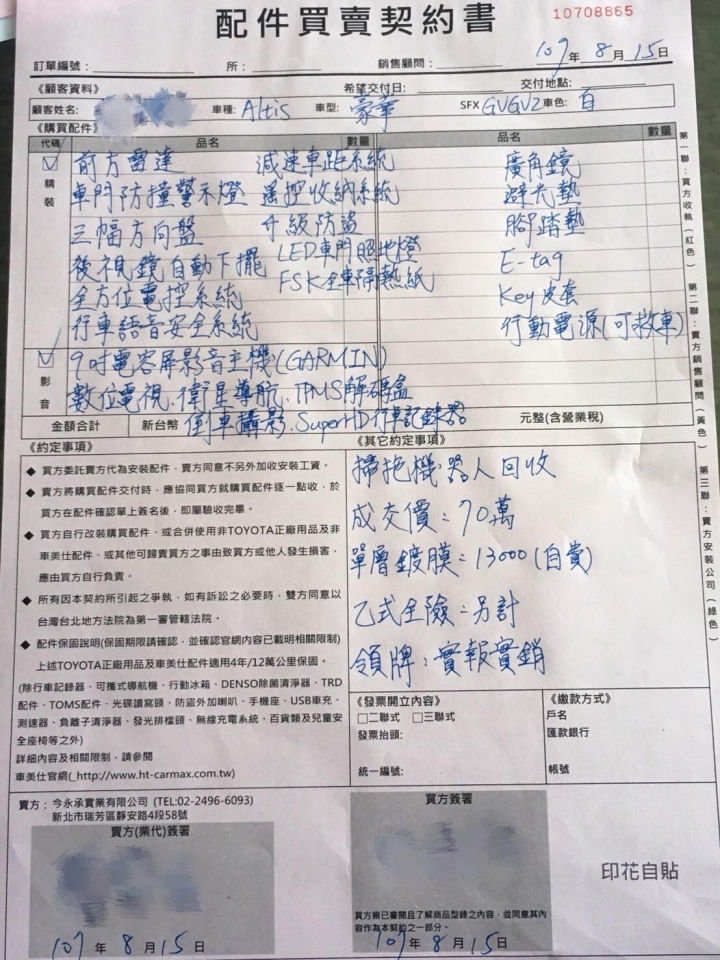 配件買賣契約書
10708865
107年 8月 15日
訂單編號：
所：
銷售顧問：
《顧客資料》
希望交付日：
交付地點：
顧客姓名：
車種：Altis
車型：豪華
SFX GVGVZ 車色：白
《購買配件》
代碼 品名 數量 品名 數量
精裝
前方雷達 減速車距系統 廣角鏡
車門防撞警示燈 遙控收納系統 避光墊
三幅方向盤 升級防盜 腳踏墊
後視鏡自動下擺 LED車門照地燈 E-tag
全方位電控系統 FSK全車隔熱紙 Key皮套
行車語音安全系統 行動電源(可救車)
影音
9吋電容屏影音主機(GARMIN)
數位電視、衛星導航、TPMS解碼盒
倒車攝影、SuperHD行車記錄器
金額合計 新台幣 元整(含營業稅)
《約定事項》
◆ 買方委託賣方代為安裝配件，賣方同意不另外加收安裝工資。
◆ 賣方將購買配件交付時，應協同買方就購買配件逐一點收，於
買方在配件確認單上簽名後，即屬驗收完畢。
◆ 買方自行改裝購買配件、或合併使用非TOYOTA正廠用品及非
車美仕配件、或其他可歸責買方之事由致買方或他人發生損害，
應由買方自行負責。
◆ 所有因本契約所引起之爭執，如有訴訟之必要時，雙方同意以
台灣台北地方法院為第一審管轄法院。
◆ 配件保固說明(保固期限請確認，並確認官網內容已載明相關限制)
上述TOYOTA正廠用品及車美仕配件適用4年/12萬公里保固。
(除行車記錄器、可攜式導航機、行動冰箱、DENSO除菌清淨器、TRD
配件、TOMS配件、光碟讀寫頭、防盜外加喇叭、手機座、USB車充、
測速器、負離子清淨器、發光排檔頭、無線充電系統、百貨類及兒童安
全座椅等之外)
詳細內容及相關限制，請參閱
車美仕官網(_http://www.ht-carmax.com.tw)
《其它約定事項》
掃拖機器人回收
成交價：70萬
單層鍍膜：13000(自費)
乙式全險：另計
領牌：實報實銷
《發票開立內容》
□二聯式 □三聯式
發票抬頭：
統一編號：
《繳款方式》
戶名
匯款銀行
帳號
賣方：今永承實業有限公司 (TEL:02-2496-6093)
新北市瑞芳區靜安路4段58號
賣方(業代)簽署
107年 8月 15日
買方簽署
買方業已審閱且了解商品型錄之內容，並同意其內
容作為本契約之一部分。
107年 8月 15日
印花自貼
第一聯：買方收執(紅色)
第二聯：賣方銷售顧問(黃色)
第三聯：賣方安裝公司(綠色)